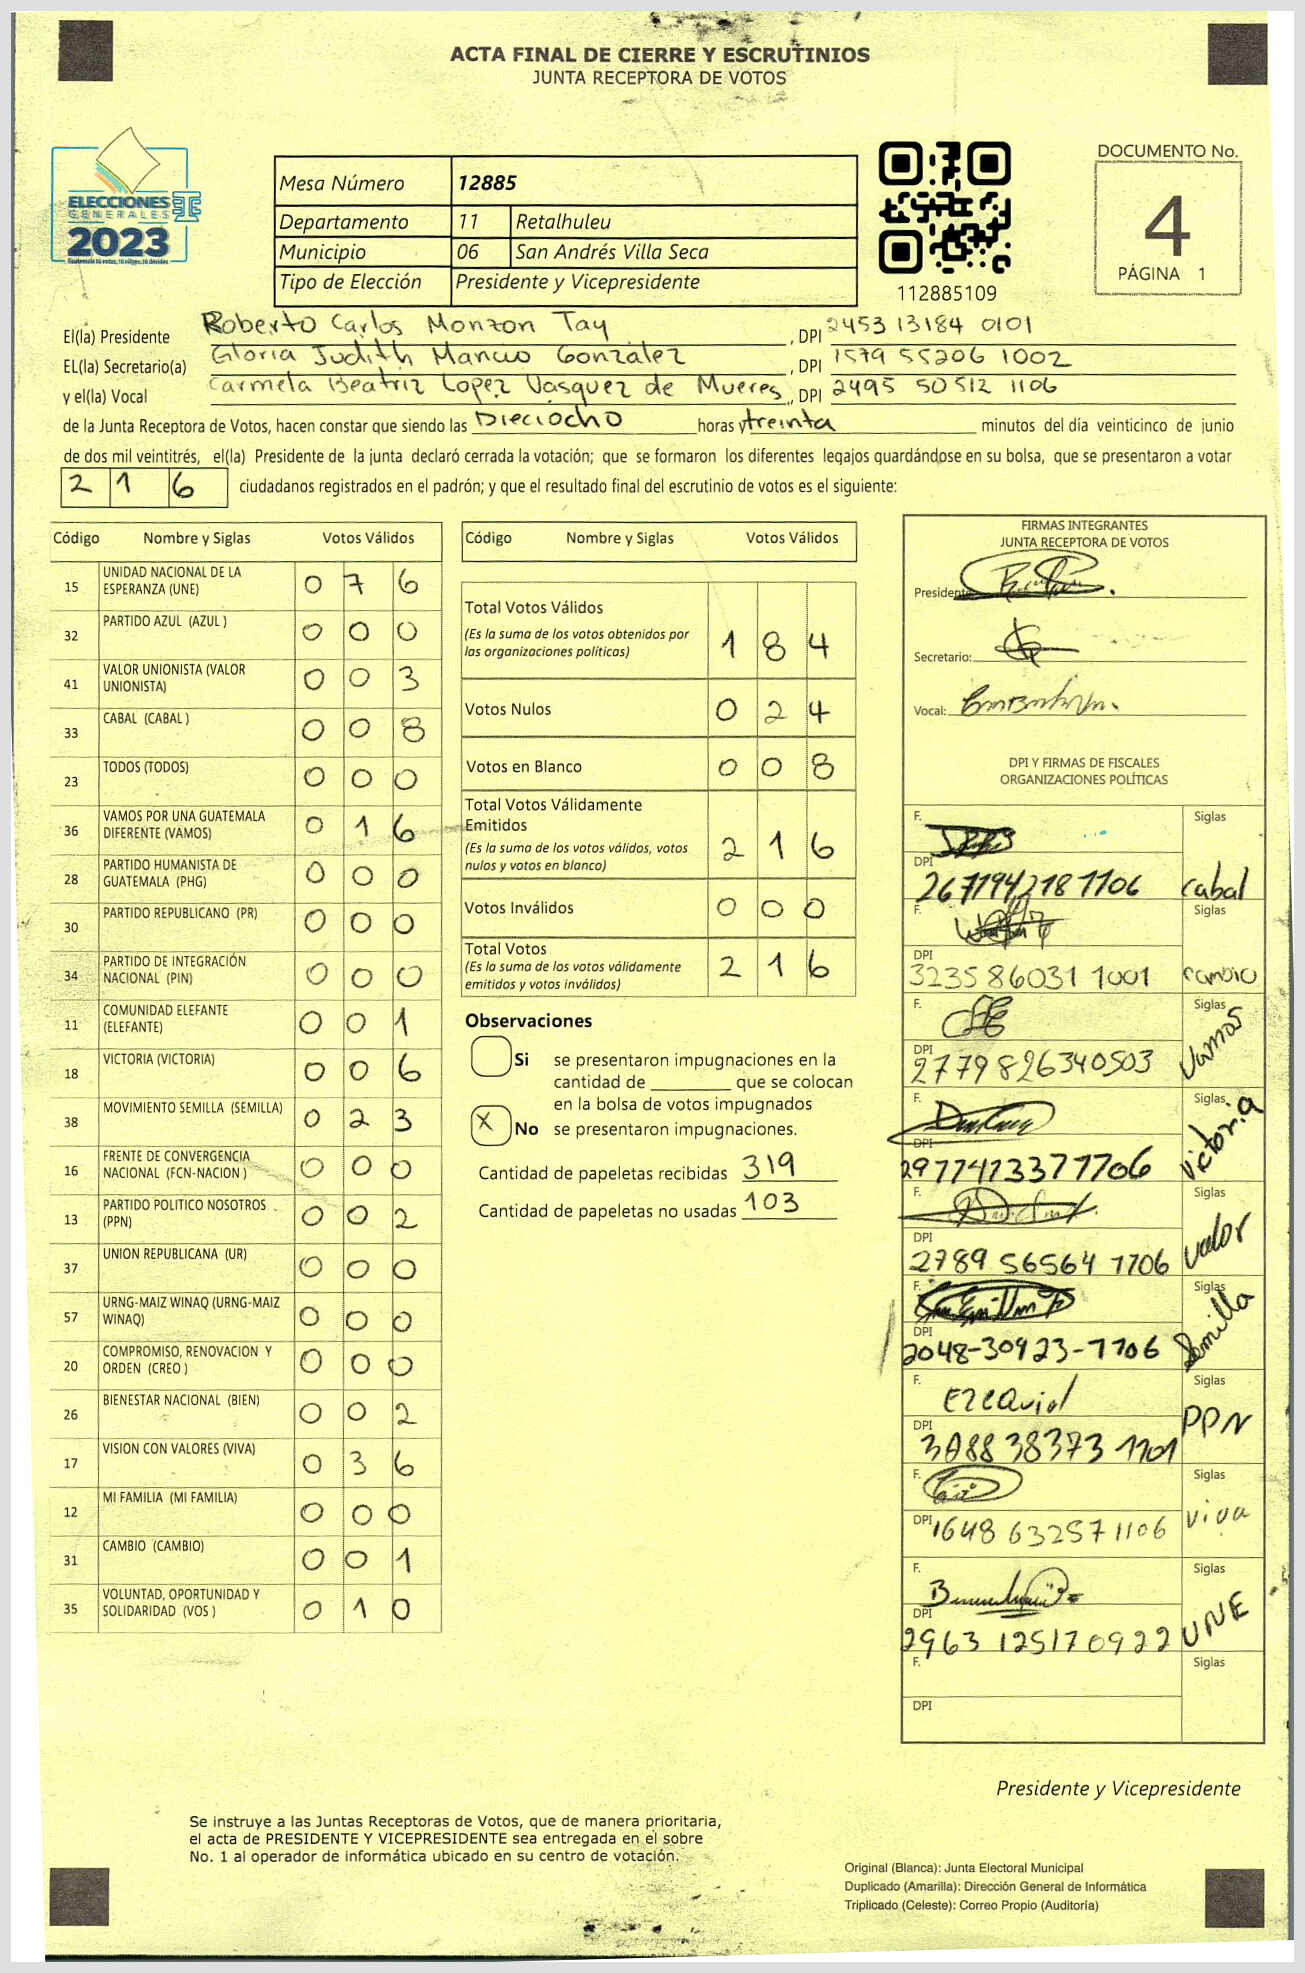 ACTA FINAL DE CIERRE Y ESCRUTINIOS
JUNTA RECEPTORA DE VOTOS
ELECCIONES
GENERALES
2023
Mesa Número 12885
Departamento 11 Retalhuleu
Municipio 06 San Andrés Villa Seca
Tipo de Elección Presidente y Vicepresidente
112885109
DOCUMENTO No.
4
PÁGINA 1
El(la) Presidente Roberto Carlos Monzon Tay, DPI 2453 13184 0101
EL(la) Secretario(a) Gloria Judith Mancio González, DPI 1579 55206 1002
y el(la) Vocal Carmela Beatriz Lopez Vasquez de Mueres, DPI 2495 50512 1106
de la Junta Receptora de Votos, hacen constar que siendo las Dieciocho horas y treinta minutos del día veinticinco de junio
de dos mil veintitrés, el(la) Presidente de la junta declaró cerrada la votación; que se formaron los diferentes legajos guardándose en su bolsa, que se presentaron a votar
216 ciudadanos registrados en el padrón; y que el resultado final del escrutinio de votos es el siguiente:
Código Nombre y Siglas Votos Válidos
15 UNIDAD NACIONAL DE LA ESPERANZA (UNE) 0 7 6
32 PARTIDO AZUL (AZUL ) 0 0 0
41 VALOR UNIONISTA (VALOR UNIONISTA) 0 0 3
33 CABAL (CABAL ) 0 0 8
23 TODOS (TODOS) 0 0 0
36 VAMOS POR UNA GUATEMALA DIFERENTE (VAMOS) 0 1 6
28 PARTIDO HUMANISTA DE GUATEMALA (PHG) 0 0 0
30 PARTIDO REPUBLICANO (PR) 0 0 0
34 PARTIDO DE INTEGRACIÓN NACIONAL (PIN) 0 0 0
11 COMUNIDAD ELEFANTE (ELEFANTE) 0 0 1
18 VICTORIA (VICTORIA) 0 0 6
38 MOVIMIENTO SEMILLA (SEMILLA) 0 2 3
16 FRENTE DE CONVERGENCIA NACIONAL (FCN-NACION ) 0 0 0
13 PARTIDO POLITICO NOSOTROS (PPN) 0 0 2
37 UNION REPUBLICANA (UR) 0 0 0
57 URNG-MAIZ WINAQ (URNG-MAIZ WINAQ) 0 0 0
20 COMPROMISO, RENOVACION Y ORDEN (CREO ) 0 0 0
26 BIENESTAR NACIONAL (BIEN) 0 0 2
17 VISION CON VALORES (VIVA) 0 3 6
12 MI FAMILIA (MI FAMILIA) 0 0 0
31 CAMBIO (CAMBIO) 0 0 1
35 VOLUNTAD, OPORTUNIDAD Y SOLIDARIDAD (VOS ) 0 1 0
Código Nombre y Siglas Votos Válidos
Total Votos Válidos 1 8 4
(Es la suma de los votos obtenidos por
las organizaciones políticas)
Votos Nulos 0 2 4
Votos en Blanco 0 0 8
Total Votos Válidamente
Emitidos 2 1 6
(Es la suma de los votos válidos, votos
nulos y votos en blanco)
Votos Inválidos 0 0 0
Total Votos 2 1 6
(Es la suma de los votos válidamente
emitidos y votos inválidos)
Observaciones
Si se presentaron impugnaciones en la
cantidad de ________ que se colocan
en la bolsa de votos impugnados
X No se presentaron impugnaciones.
Cantidad de papeletas recibidas 319
Cantidad de papeletas no usadas 103
FIRMAS INTEGRANTES
JUNTA RECEPTORA DE VOTOS
Presidente:
Secretario:
Vocal:
DPI Y FIRMAS DE FISCALES
ORGANIZACIONES POLÍTICAS
F. Siglas
DPI 2671942181106 Cabal
F. Siglas
DPI 3235 86031 1001 cambio
F. Siglas
DPI 2779826340503 Vamos
F. Siglas
DPI Victoria
F. Siglas
DPI 2789 56564 1106 valor
F. Siglas
DPI 2048-30923-1106 Semilla
F. Ezequiel Siglas
DPI PPN
F. Siglas
DPI 1648 63257 1106 viva
F. Siglas
DPI 2963 12517 0922 UNE
F. Siglas
DPI
Presidente y Vicepresidente
Se instruye a las Juntas Receptoras de Votos, que de manera prioritaria,
el acta de PRESIDENTE Y VICEPRESIDENTE sea entregada en el sobre
No. 1 al operador de informática ubicado en su centro de votación.
Original (Blanca): Junta Electoral Municipal
Duplicado (Amarilla): Dirección General de Informática
Triplicado (Celeste): Correo Propio (Auditoría)